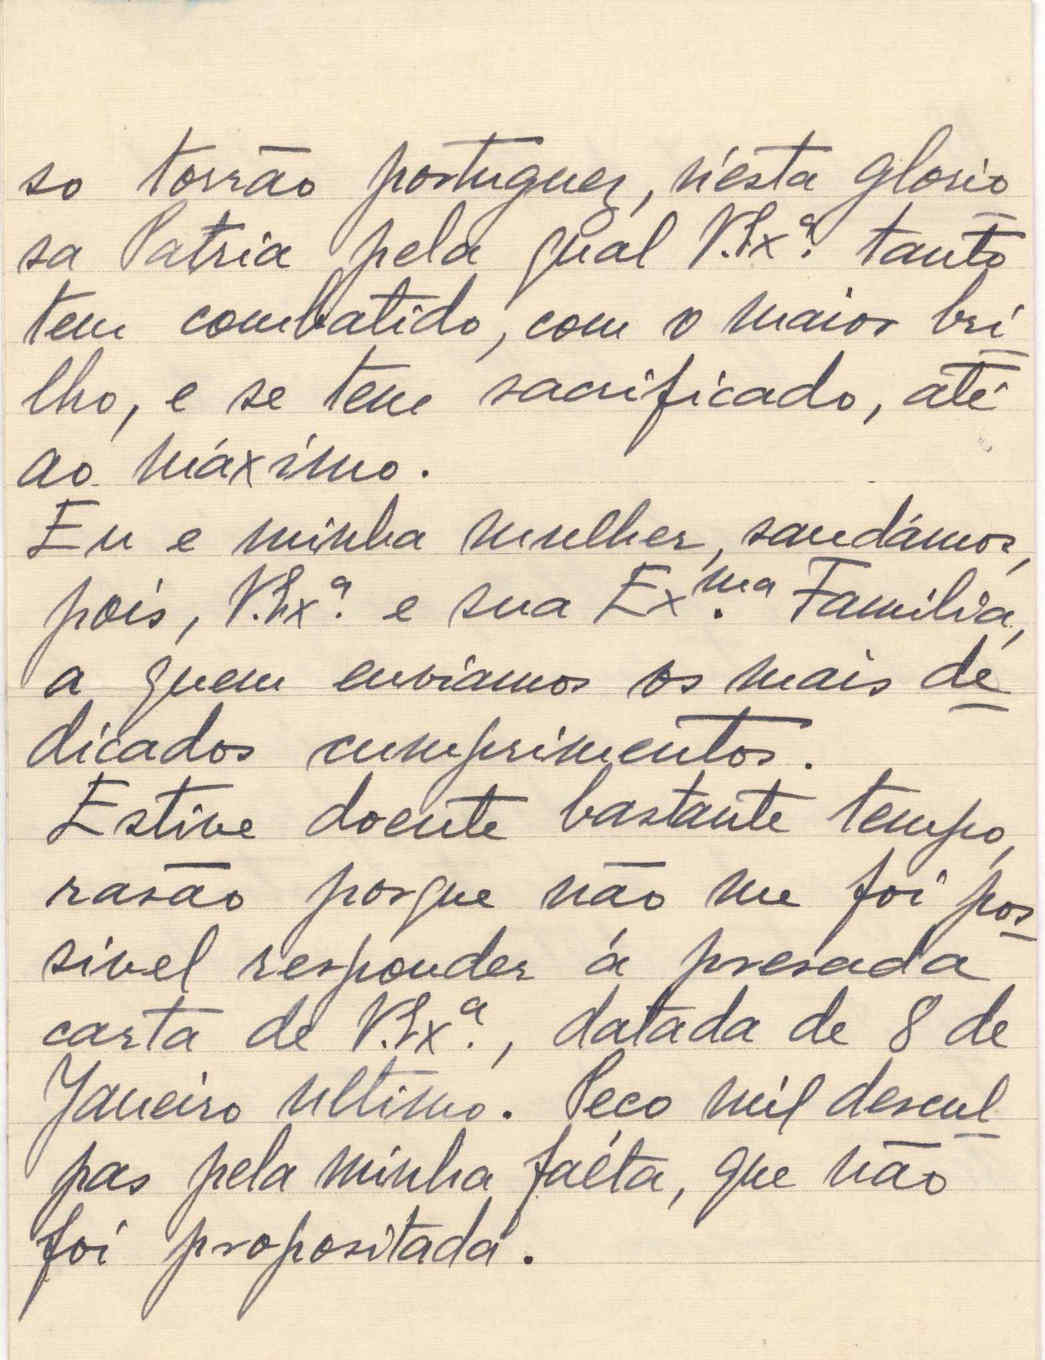 so torrão portuguez, n'esta glorio
sa Patria pela qual V.Exª. tanto
tem combatido, com o maior bri
lho, e se tem sacrificado, até
ao máximo.
Eu e minha mulher, saudámos,
pois, V.Exª. e sua Ex.ma Familia,
a quem enviamos os mais de
dicados cumprimentos.
Estive doente bastante tempo,
rasão porque não me foi pos
sivel responder á presada
carta de V.Exª., datada de 8 de
Janeiro ultimo. Peço mil descul
pas pela minha falta, que não
foi propositada.